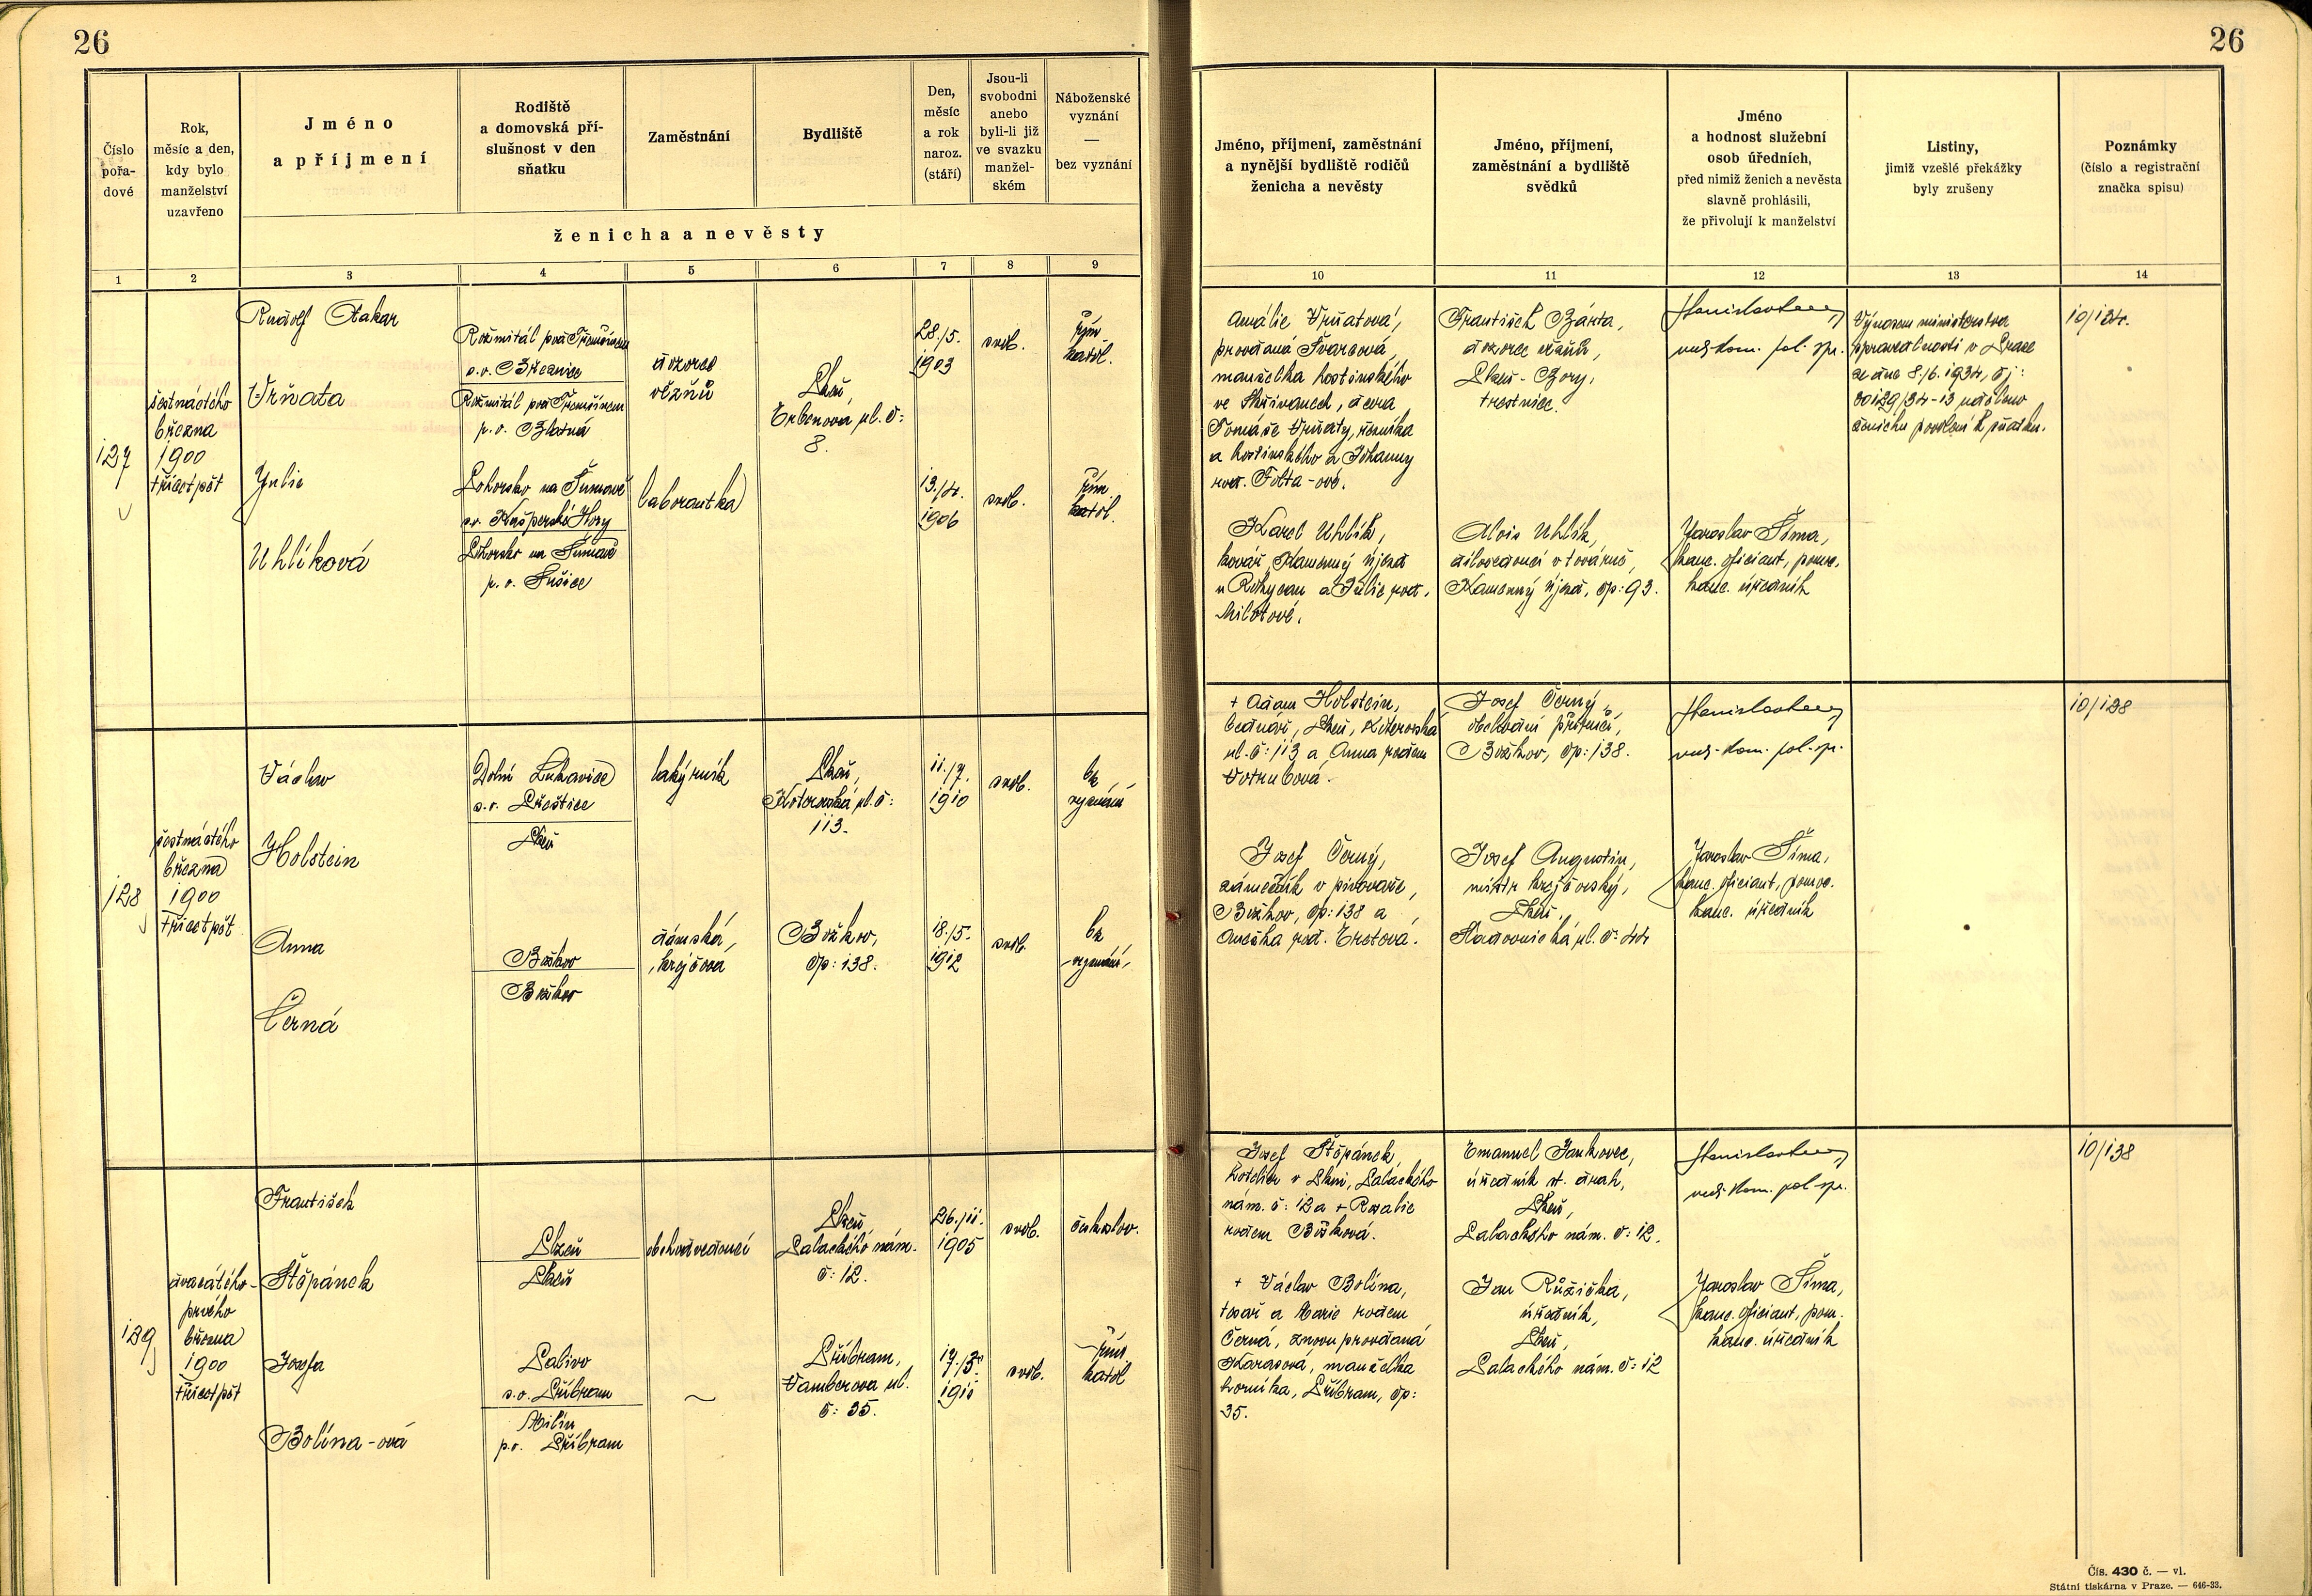 26
26
Číslo
pořa-
dové
Rok,
měsíc a den,
kdy bylo
manželství
uzavřeno
Jméno
a příjmení
Rodiště
a domovská pří-
slušnost v den
sňatku
Zaměstnání
Bydliště
Den,
měsíc
a rok
naroz.
(stáří)
Jsou-li
svobodni
anebo
byli-li již
ve svazku
manžel-
ském
Náboženské
vyznání
—
bez vyznání
ženicha a nevěsty
Jméno, příjmení, zaměstnání
a nynější bydliště rodičů
ženicha a nevěsty
Jméno, příjmení,
zaměstnání a bydliště
svědků
Jméno
a hodnost služební
osob úředních,
před nimiž ženich a nevěsta
slavně prohlásili,
že přivolují k manželství
Listiny,
jimiž vzešlé překážky
byly zrušeny
Poznámky
(číslo a registrační
značka spisu)
1 2 3 4 5 6 7 8 9 10 11 12 13 14
127
šestnáctého
března
1900
třicetpět
Rudolf Otakar
Vrňata
Rožmitál pod Třemšínem
s.o. Březnice
Rožmitál pod Třemšínem
p.o. Blatná
dozorce
vězňů
Plzeň,
Erbenova ul. č:
8.
28./5.
1903
svob.
řím
katol.
Julie
Uhlíková
Zhůřsko na Šumavě
s.o. Kašperské Hory
na Šumavě
p.o. Sušice
laborantka
13./4.
1906
svob.
řím
katol.
Amálie Vrňatová,
provdaná Švarcová,
manželka hostinského
ve Skřivanech, dcera
Tomáše Vrňaty, řezníka
a hostinského a Johanny
roz. Folta-ové.
Karel Uhlík,
kovář, Kamenný Újezd
u Rokycan a Julie roz.
Milotové.
František Bárta,
dozorce vězňů,
Plzeň-Bory,
trestnice.
Alois Uhlík,
dílovedoucí v továrně,
Kamenný Újezd, čp: 93.
rad. kom. pol. spr.
Jaroslav Šíma,
kanc. oficiant, pomoc.
kanc. úředník
Výnosem ministerstva
spravedlnosti v Praze
ze dne 8./6. 1934, čj:
30129/34-13 uděleno
ženichu povolení k sňatku.
10/124.
128
šestnáctého
března
1900
třicetpět
Václav
Holstein
Dolní Lukavice
s.o. Přeštice
Plzeň
lakýrník
Plzeň,
Koterovská ul. č:
113.
11./7.
1910
svob.
bez
vyznání
Anna
Černá
Božkov
Božkov
dámská
krejčová
Božkov,
čp: 138.
18./5.
1912
svob.
bez
vyznání
+ Adam Holstein,
bednář, Plzeň, Koterovská
ul. č: 113 a Anna rodem
Votrubová.
Josef Černý,
zámečník v pivovaře,
Božkov, čp: 138 a
Anežka roz. Erctová.
Josef Černý,
obchodní příručí,
Božkov, čp: 138.
Josef Augustin,
mistr krejčovský,
Plzeň,
Sladovnická ul. č: 44
rad. kom. pol. spr.
Jaroslav Šíma,
kanc. oficiant, pomoc.
kanc. úředník
10/128
129
dvacátého-
prvého
března
1900
třicetpět
František
Štěpánek
Plzeň
Plzeň
obchodvedoucí
Plzeň,
Palackého nám.
č: 12.
26./11.
1905
svob.
čsl.
Josefa
Bolina-ová
s.o. Příbram
Milín
p.o. Příbram
~
Příbram,
ul.
č: 35.
17./3.
1910
svob.
řím
katol
Josef Štěpánek,
hotelier v Plzni, Palackého
nám. č: 12 a + Rosalie
rodem Bušková.
+ Václav Bolina,
tesař a Marie rodem
Černá, znovu provdaná
Karasová, manželka
horníka, Příbram, čp:
35.
Emanuel Jankovec,
úředník st. drah,
Plzeň,
Palackého nám. č: 12.
Jan Růžička,
úředník,
Plzeň,
Palackého nám. č: 12
rad. kom. pol. spr.
Jaroslav Šíma,
kanc. oficiant, pom.
kanc. úředník
10/138
Čís. 430 č. — vl.
Státní tiskárna v Praze. — 646-33.